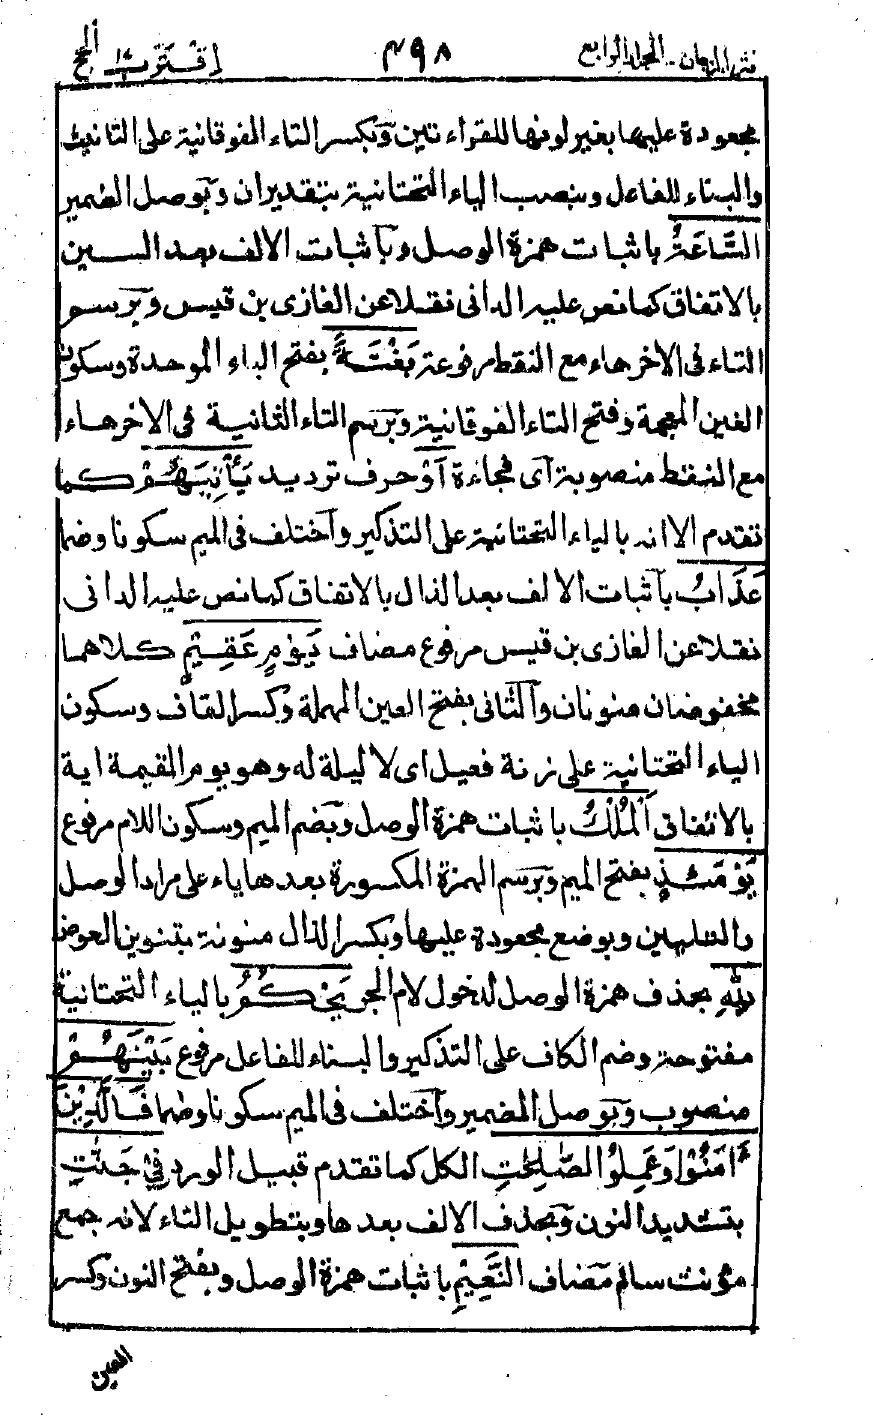 نثر المرجان - المجلد الرابع ٤٩٨ اقترب ١٧ الحج
مجعودة عليها بغير لونها للقراءتين وبكسر التاء الفوقانية على التانيث
والبناء للفاعل وبنصب الياء التحتانية بتقدير ان وبوصل الضمير
السَّاعَةُ باثبات همزة الوصل وبآثبات الالف بعد السين
بالاتفاق كما نص عليه الدانى نقلا عن الغازى بن قيس وبرسم
التاء فى الاخر هاء مع النقط مرفوعة بَغْتَةً بفتح الباء الموحدة وسكون
الغين المعجمة وفتح التاء الفوقانية وبرسم التاء الثانية فى الاخر هاء
مع النقط منصوبة اى فجاءة اَوْ حرف ترديد يَأْتِيَهُمْ كما
تقدم الا انه بالياء التحتانية على التذكير وآختلف فى الميم سكونا وضما
عَذَابُ بآثبات الالف بعد الذال بالاتفاق كما نص عليه الدانى
نقلا عن الغازى بن قيس مرفوع مضاف يَوْمٍ عَقِيْمٍ كلاهما
مخفوضان منونان وآلثانى بفتح العين المهملة وكسر القاف وسكون
الياء التحتانية على زنة فعيل اى لا ليلة له وهو يوم القيمة اية
بالاتفاق اَلْمُلْكُ باثبات همزة الوصل وبضم الميم وسكون اللام مرفوع
يَوْمَئِذٍ بفتح الميم وبرسم الهمزة المكسورة بعدها ياء على مراد الوصل
والتليين وبوضع مجعودة عليها وبكسر الذال منونة بتنوين العوض
لِلّٰهِ بحذف همزة الوصل لدخول لام الجر يَحْكُمُ بالياء التحتانية
مفتوحة وضم الكاف على التذكير والبناء للفاعل مرفوع بَيْنَهُمْ
منصوب وبوصل الضمير وآختلف فى الميم سكونا وضما فَالَّذِيْنَ
ءَامَنُوْا وَعَمِلُوا الصّٰلِحٰتِ الكل كما تقدم قبيل الورد فِىْ جَنّٰتِ
بتشديد النون وبحذف الالف بعدها وبتطويل التاء لانه جمع
مؤنث سالم مضاف النَّعِيْمِ باثبات همزة الوصل وبفتح النون وكسر
العين